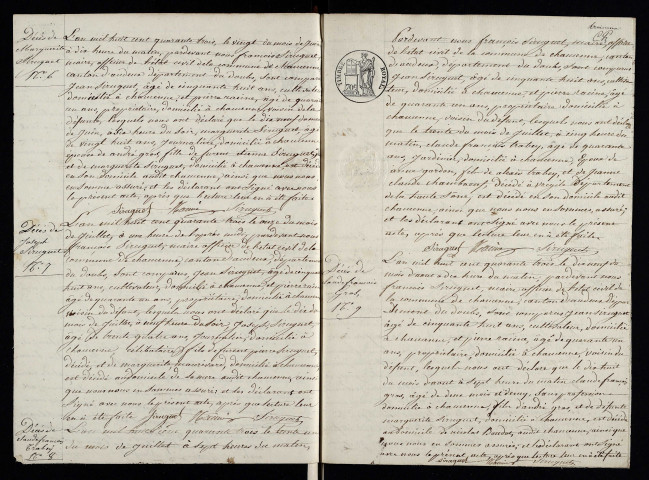 Décès de
Marguerite
Siruguet
N° 6
L'an mil huit cent quarante trois, le vingt du mois de
à dix heures du matin, pardevant nous françois Siruguet,
maire, officier de l'état civil de la commune de chaucenne,
canton d'audeux, département du doubs, sont comparus
Jean Siruguet, âgé de cinquante huit ans, cultivateur,
domicilié à chaucenne, et pierre racine, âgé de quarante
un ans, propriétaire, domicilié à chaucenne, voisin de la
défunte, lesquels nous ont déclaré que le dix neuf du mois
de Juin, à six heures du soir, marguerite Siruguet, âgée
de vingt huit ans, Journalière, domiciliée à chaucenne,
épouse de andré gros, fille de
et de marguerite Siruguet, domiciliée à chaucenne, est décédée
en son domicile audit chaucenne, ainsi que nous nous
en sommes assuré; et les déclarants ont signé avec nous
le présent acte, après que lecture leur en a été faite
Siruguet Racine Siruguet
Décès de
Joseph
Siruguet
N° 7
L'an mil huit cent quarante trois le onze du mois
de Juillet, à une heure de l'après midi, pardevant nous
françois Siruguet, maire officier de l'état civil de la
commune de chaucenne, canton d'audeux, département
du doubs, sont comparus Jean Siruguet, âgé de cinquante
huit ans, cultivateur, domicilié à chaucenne, et pierre racine,
âgé de quarante un ans, propriétaire, domicilié à chaucenne
voisin du défunt, lesquels nous ont déclaré que le dix du
mois de Juillet, à neuf heures du soir, Joseph Siruguet,
âgé de trente quatre ans, domicilié à
chaucenne, célibataire, fils de
décédé, et de marguerite domiciliée à chaucenne
est décédé audit chaucenne, ainsi
que nous nous en sommes assuré; et les déclarants ont
signé avec nous le présent acte, après que lecture leur
en a été faite Siruguet Racine Siruguet
Décès de
claude françois
N° 8
L'an mil huit cent quarante trois le trente un
du mois de Juillet à sept heures du matin,
Pardevant nous françois Siruguet, maire, officier
de l'état civil de la commune de chaucenne, canton
d'audeux, département du doubs, sont comparus
Jean Siruguet, âgé de cinquante huit ans, cultivateur,
domicilié à chaucenne, et pierre racine, âgé
de quarante un ans, propriétaire, domicilié à
chaucenne, voisin du défunt, lesquels nous ont déclaré
que le trente du mois de Juillet, à cinq heures du
matin, claude françois âgé de quarante
ans, Jardinier, domicilié à chaucenne, époux de
anne gardon, fils de et de Jeanne
claude décédé à département
de la haute Saône, est décédé en son domicile audit
chaucenne, ainsi que nous nous en sommes assuré;
et les déclarants ont signé avec nous le présent
acte, après que lecture leur en a été faite
Siruguet Racine Siruguet
TIMBRE ROYAL
Décès de
claude françois
gros,
N° 9
L'an mil huit cent quarante trois le dix neuf du
mois d'août à dix heures du matin, pardevant nous
françois Siruguet, maire, officier de l'état civil de
la commune de chaucenne, canton d'audeux dépar-
tement du doubs, sont comparus Jean Siruguet
âgé de cinquante huit ans, cultivateur, domicilié
à chaucenne, et pierre racine, âgé de quarante un
ans, propriétaire, domicilié à chaucenne, voisin du
défunt, lesquels nous ont déclaré que le dix huit
du mois d'août à sept heures du matin claude françois
gros, âgé de deux mois et demi, sans profession
domicilié à chaucenne, fils d'andré gros, et de défunte
marguerite Siruguet, domicilié à chaucenne, est décédé
au domicile de audit chaucenne, ainsi que
nous nous en sommes assuré, et les déclarants ont signé
avec nous le présent acte, après que lecture leur en a été faite
Siruguet Racine Siruguet